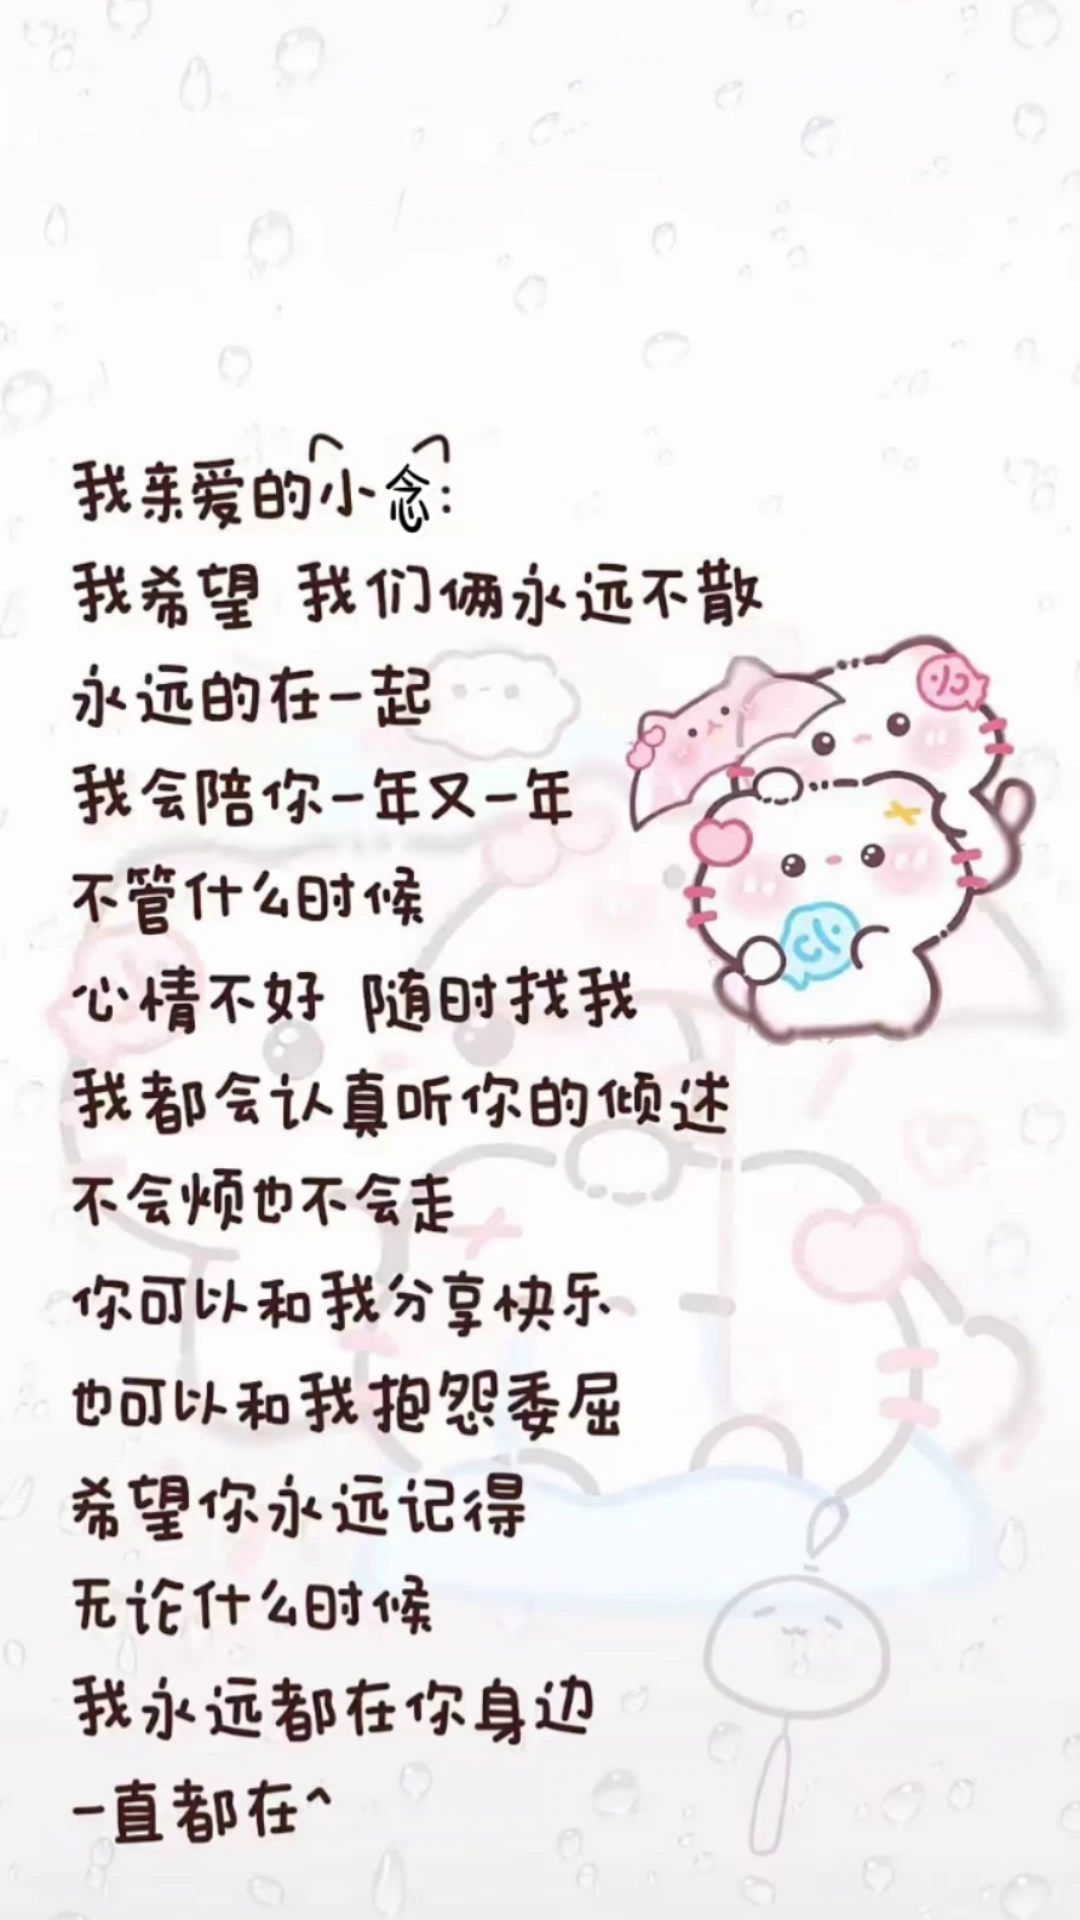 我亲爱的小念:
我希望 我们俩永远不散
永远的在一起
我会陪你一年又一年
不管什么时候
心情不好 随时找我
我都会认真听你的倾述
不会烦也不会走
你可以和我分享快乐
也可以和我抱怨委屈
希望你永远记得
无论什么时候
我永远都在你身边
一直都在^